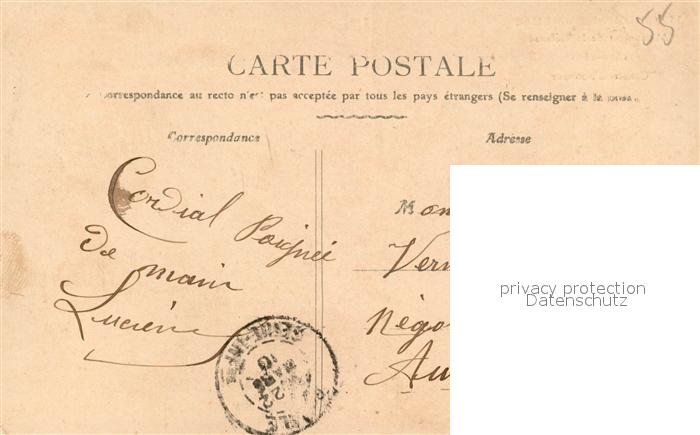 55
CARTE POSTALE
Correspondance au recto n'est pas acceptée par tous les pays étrangers (Se renseigner à la
Correspondance
Adresse
Cordial Poignée
de main
Lucien
Mon
Vern
Négo
Au
privacy protection
Datenschutz
22
MARS
10